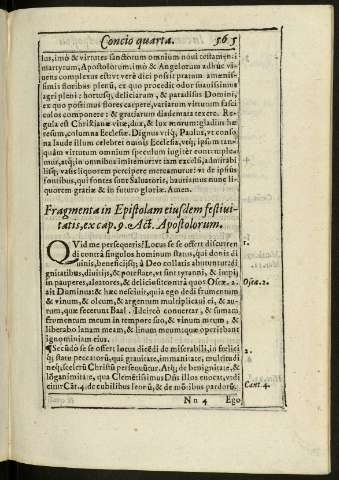 Concio quarta. 565
lus, imò & virtutes sanctorum omnium noui testamen-
martyrum, Apostolorum, imò & Angelorum adhuc vi-
uens complexus est: vt verè dici possit pratum amœnis-
simis floribus plenũ, ex quo procedit odor suauissimus
agri pleni: hortusq; deliciarum, & paradisus Domini,
ex quo possimus flores carpere, variarum virtutum fasci
culos componere: & gratiarum diadema texere. Re-
gula est Christianæ vitæ, dux, & lux morum: gladius hæ
resum, columna Ecclesiæ. Dignus vtiq; Paulus, vt conso
na laude illum celebret omnis Ecclesia, vtiq; ipsum tan-
quàm virtutum omnium speculum iugiter contẽple-
mur, atq; in omnibus imitemur: vt tam excelsi, admirabi
lisq; vasis liquorem percipere mereamur: vt de ipsius
fontibus, qui fontes sunt Saluatoris, hauriamus nunc li-
quorem gratiæ & in futuro gloriæ. Amen.
Fragmenta in Epistolam eiusdem festiui-
tatis, ex cap. 9. Act. Apostolorum.
QVid me persequeris? Locus se se offert discurren
di contrà singulos hominum status, qui donis di
uinis, beneficijsq; à Deo collatis abutuntur: di-
gnitatibus, diuitijs, & potestate, vt sint tyranni, & impij
in pauperes, aleatores, & deliciosi: contrà quos Oseæ. 2.
ait Dominus: & hæc nesciuit, quia ego dedi frumentum
& vinum, & oleum, & argentum multiplicaui ei, & au-
rum, quæ fecerunt Baal. Idcircò conuertar, & sumam
frumentum meum in tempore suo, & vinum meum, &
liberabo lanam meam, & linum meum: quæ operibant
ignominiam eius.
¶ Secũdo se se offert locus dicẽdi de miserabili, infelici
q; statu peccatorũ, qui grauitate, immanitate, multitudi
neq; scelerũ Christũ persequũtur. Atq; de benignitate, &
lõganimitate, qua Clemẽtissimus Dñs illos euocat, vidi
citur Cãt. 4. de cubilibus leonũ, & de mõtibus pardorũ.
1.
Osea. 2.
2.
Cant. 4.
Nn 4 Ego